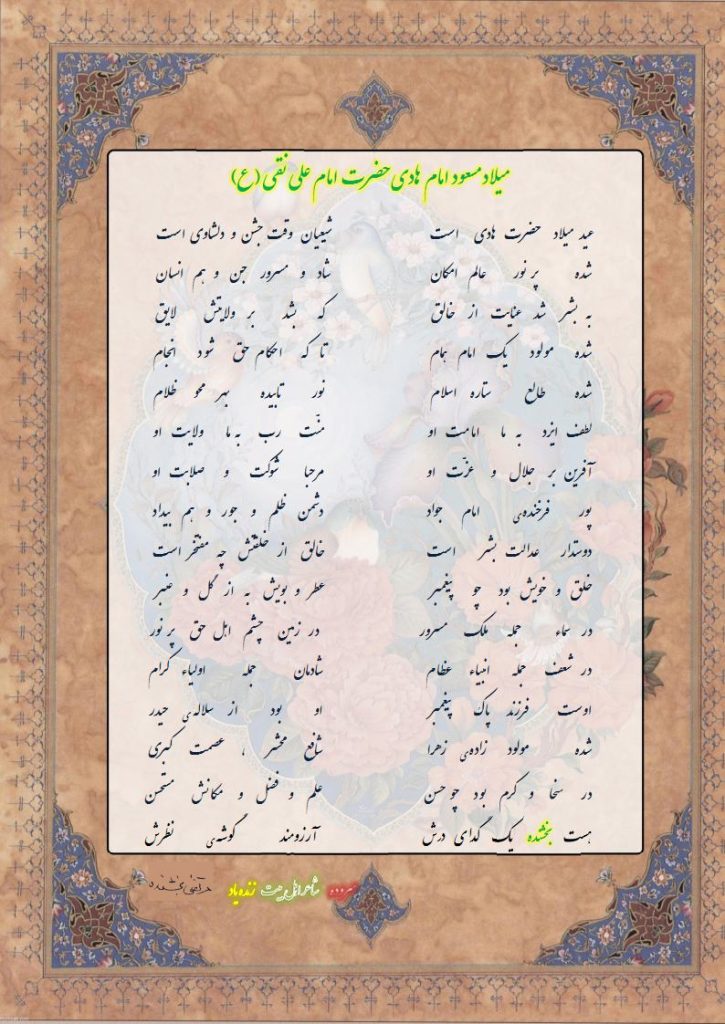 میلاد مسعود امام هادی حضرت امام علی نقی (ع)
عید میلاد حضرت هادی است شیعیان وقت جشن و دلشادی است
شده پر نور عالم امکان شاد و مسرور جن و هم انسان
به بشر شد عنایت از خالق که بشد بر ولایتش لایق
شده مولود یک امام همام تا که احکام حق شود انجام
شده طالع ستاره اسلام نور تابیده بهر محو ظلام
لطف ایزد به ما امامت او منّت رب به ما ولایت او
آفرین بر جلال و عزّت او مرحبا شوکت و صلابت او
پور فرخنده‌ی امام جواد دشمن ظلم و جور و هم بیداد
دوستدار عدالت بشر است خالق از خلقتش چه مفتخر است
خلق و خویش بود چو پیغمبر عطر و بویش به از گل و عنبر
در سماء جمله ملک مسرور در زمین چشم اهل حق پر نور
در شعف جمله انبیاء عظام شادمان جمله اولیاء کرام
اوست فرزند پاک پیغمبر او بود از سلاله‌ی حیدر
شده مولود زاده‌ی زهرا شافع محشر ، عصمت کبری
در سخا و کرم بود چو حسن علم و فضل و مکانش مستحسن
هست بخشده یک گدای درش آرزومند گوشه‌ی نظرش
سروده شاعر اهل بیت زنده یاد